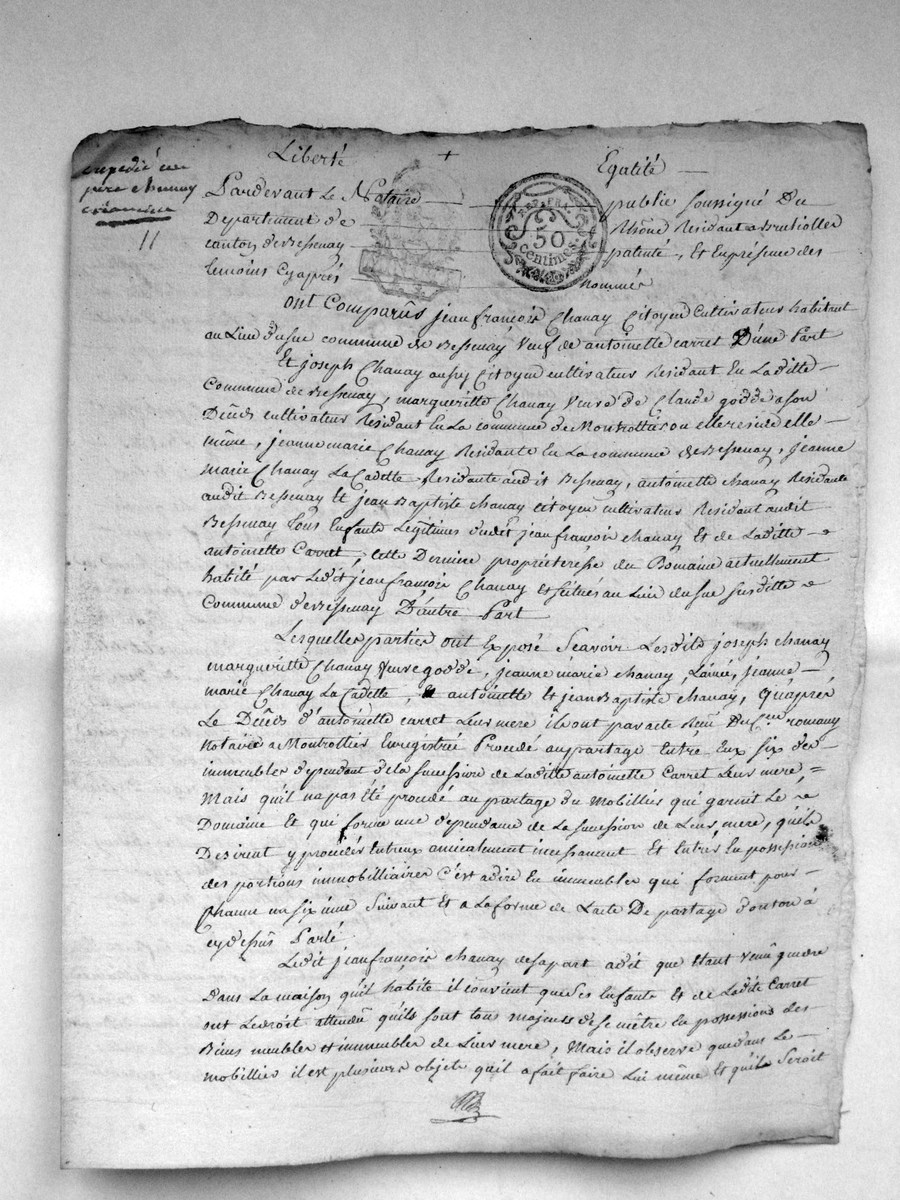 Liberté + Egalité
expedié au
pere Chanay
11
Pardevant Le Notaire public soussigné Du
Departement de Rhône Residant a Brullioller
canton de Bessenay patenté, Et en présence des
temoins Cy aprés nommés
REP. FRA.
50
centimes.
ont Comparûs jean françois Chanay Citoyen Cultivateur habitant
au Lieu du sue commune de Bessenay Veuf de antoinette carret D'une Part
Et joseph Chanay aussy Citoyen cultivateur Residant En Laditte
Commune de Bessenay, margueritte Chanay Veuve de Claude godde a son
Décés cultivateur Residant En La commune de Montrottier ou elle reside elle
même, jeanne marie Chanay Residante En La commune de Bessenay, jeanne
marie Chanay La Cadette Residante audit Bessenay, antoinette chanay Residante
audit Bessenay Et jean Baptiste chanay citoyen cultivateur Residant audit
Bessenay tous Enfants Legitimes dudit jean françois chanay Et de Laditte
antoinette Carret, cette Derniere propriéteresse du Domaine actuellement
habité par Ledit jean françois Chanay Et scitués au Lieu du sue susditte
Commune de Bessenay D'autre Part
Lesquelles parties ont Exposé Scavoir Lesdits joseph chanay
margueritte Chanay Veuve godde, jeanne marie chanay, L'ainée, jeanne
marie Chanay La Cadette, antoinette Et jean Baptiste chanay, Qu'aprés
Le Décés d'antoinette carret Leur mere ils ont par acte Reçu Du Cen romany
Notaire a Montrottier Enregistrée Procedé au partage Entre Eux six des
immeubles dependant de la succession de Laditte antoinette Carret Leur mere,
Mais qu'il na pas été procedé au partage du Mobilliés qui garnit Le
Domaine Et qui forme une dependance de La succession de Leur mere, quils
Desirent y procédés Entreux amicalement incessament Et Entrés En possession
des portions immobilliaires c'est adire En immeubles qui forment pour
chacune un sixieme Suivant Et a La forme de Lacte De partage dont on á
cy dessus Parlé
Ledit jean françois chanay de sa part adit que Etant Venu gendre
Dans La maison qu'il habite il convient que ses Enfants Et de Ladte Carret
ont Le droit attendû quils sont tous majeurs de se mêtre En possessions des
Biens meubles et immeubles de Leur mere, Mais il observe que dans Le
mobillier il est plusieurs objets qu'il a fait faire Lui même Et quil Seroit